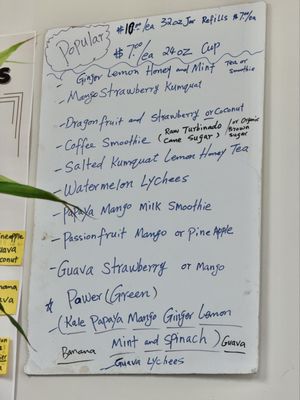 Popular
$10.00/ea 32oz Jar Refills $7.00/ea
$7.00/ea 24oz Cup
- Ginger Lemon Honey and Mint Tea or smoothie
- Mango Strawberry Kumquat
- Dragonfruit and Strawberry or Coconut
- Coffee Smoothie (Raw Turbinado Cane Sugar) /or Organic Brown Sugar
- Salted Kumquat Lemon Honey Tea
- Watermelon Lychees
- Papaya Mango Milk Smoothie
- Passionfruit Mango or Pineapple
- Guava Strawberry or Mango
* Power (Green)
- (Kale Papaya Mango Ginger Lemon
Banana Mint and spinach) Guava
Guava Lychees
s
ineapple
uava
conut
nana
ava